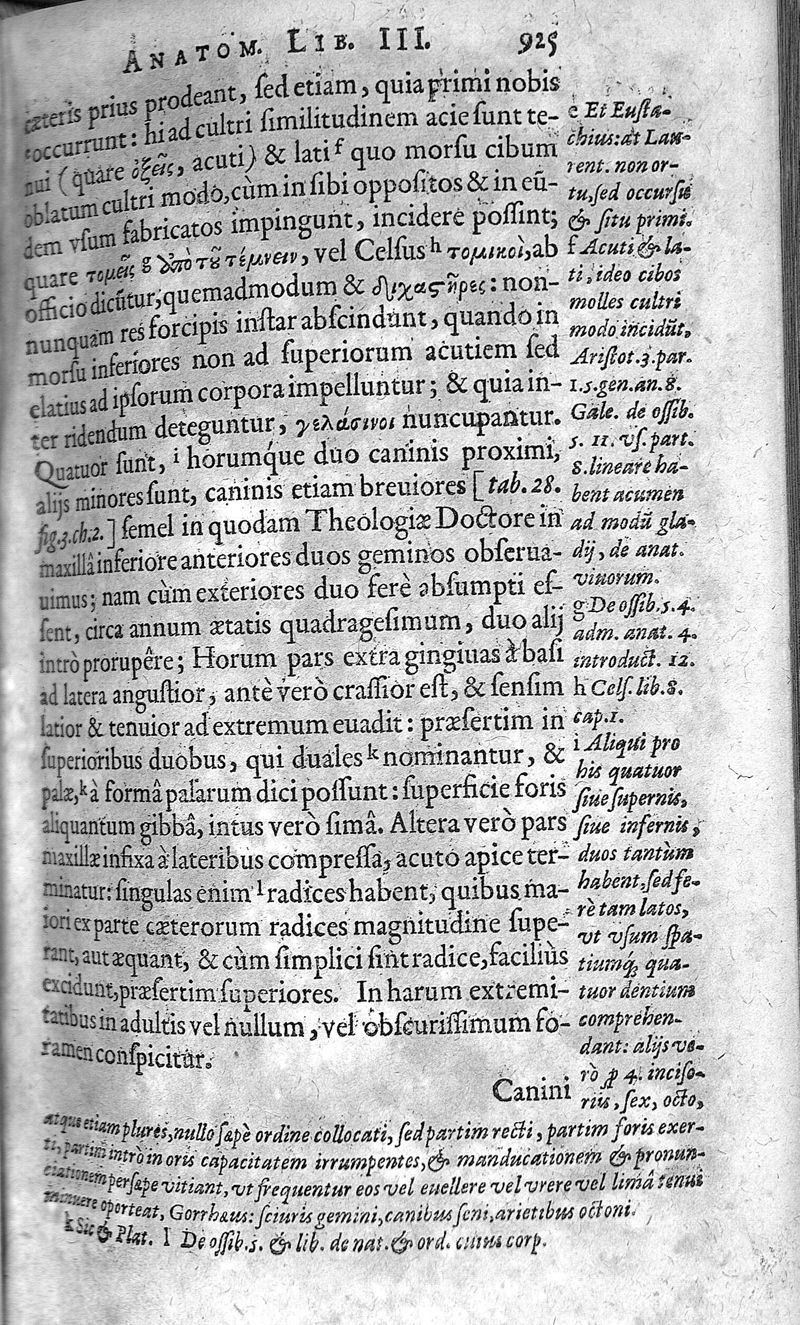 ANATOM. LIB. III. 925
cæteris prius prodeant, ſed etiam, quia primi nobis
occurrunt: hi ad cultri ſimilitudinem acie ſunt te-
nui (quare ὀξεῖς, acuti) & lati f quo morſu cibum
oblatum cultri modo, cùm in ſibi oppoſitos & in eũ-
dem vſum fabricatos impingunt, incidere poſſint;
quare τομεῖς g ὑπὸ τοῦ τέμνειν, vel Celſus h τομικοὶ, ab
officio dicũtur, quemadmodum & διχαστῆρες: non-
nunquam res forcipis inſtar abſcindunt, quando in
morſu inferiores non ad ſuperiorum acutiem ſed
elatius ad ipſorum corpora impelluntur; & quia in-
ter ridendum deteguntur, γελάσινοι nuncupantur.
Quatuor ſunt, i horumq́ue duo caninis proximi,
alijs minores ſunt, caninis etiam breuiores [tab. 28.
fig.3.ch.2.] ſemel in quodam Theologiæ Doctore in
maxillâ inferiore anteriores duos geminos obſerua-
uimus; nam cùm exteriores duo ferè abſumpti eſ-
ſent, circa annum ætatis quadrageſimum, duo alij
intrò prorupêre; Horum pars extra gingiuas à baſi
ad latera anguſtior, antè verò craſſior eſt, & ſenſim
latior & tenuior ad extremum euadit: præſertim in
ſuperioribus duobus, qui duales k nominantur, &
palæ, k à formâ palarum dici poſſunt: ſuperficie foris
aliquantum gibbâ, intus verò ſimâ. Altera verò pars
maxillæ infixa à lateribus compreſſa, acuto apice ter-
minatur: ſingulas enim l radices habent, quibus ma-
iori ex parte cæterorum radices magnitudine ſupe-
rant, aut æquant, & cùm ſimplici ſint radice, faciliùs
excidunt, præſertim ſuperiores. In harum extremi-
tatibus in adultis vel nullum, vel obſcuriſſimum fo-
ramen conſpicitur.
Canini
e Et Euſta-
chius: at Lau-
rent. non or-
tu, ſed occurſu
& ſitu primi.
f Acuti & la-
ti, ideo cibos
molles cultri
modo incidũt,
Ariſtot. 3. par.
1. 5. gen. an. 8.
Gale. de oſſib.
5. 11. vſ. part.
8. lineare ha-
bent acumen
ad modũ gla-
dij, de anat.
viuorum.
g De oſſib. 5. 4.
adm. anat. 4.
introduct. 12.
h Celſ. lib. 8.
cap. 1.
i Aliqui pro
his quatuor
ſiue ſupernis,
ſiue infernis,
duos tantùm
habent, ſed fe-
rè tam latos,
vt vſum ſpa-
tiumq́; qua-
tuor dentium
comprehen-
dant: alijs ve-
rò ꝓ 4. inciſo-
riis, ſex, octo,
atque etiam plures, nullo ſæpè ordine collocati, ſed partim recti, partim foris exer-
ti, partim intrò in oris capacitatem irrumpentes, & manducationem & pronun-
ciationem perſæpe vitiant, vt frequentur eos vel euellere vel vrere vel limâ tenui
minuere oporteat, Gorrhæus: ſciuris gemini, canibus ſeni, arietibus octoni.
k Sic & Plat. l De oſſib. 5. & lib. de nat. & ord. cuius corp.